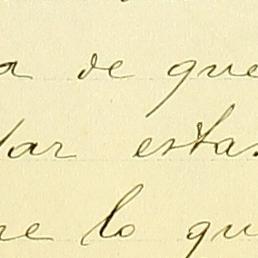 a de que
dar estas
re lo qu